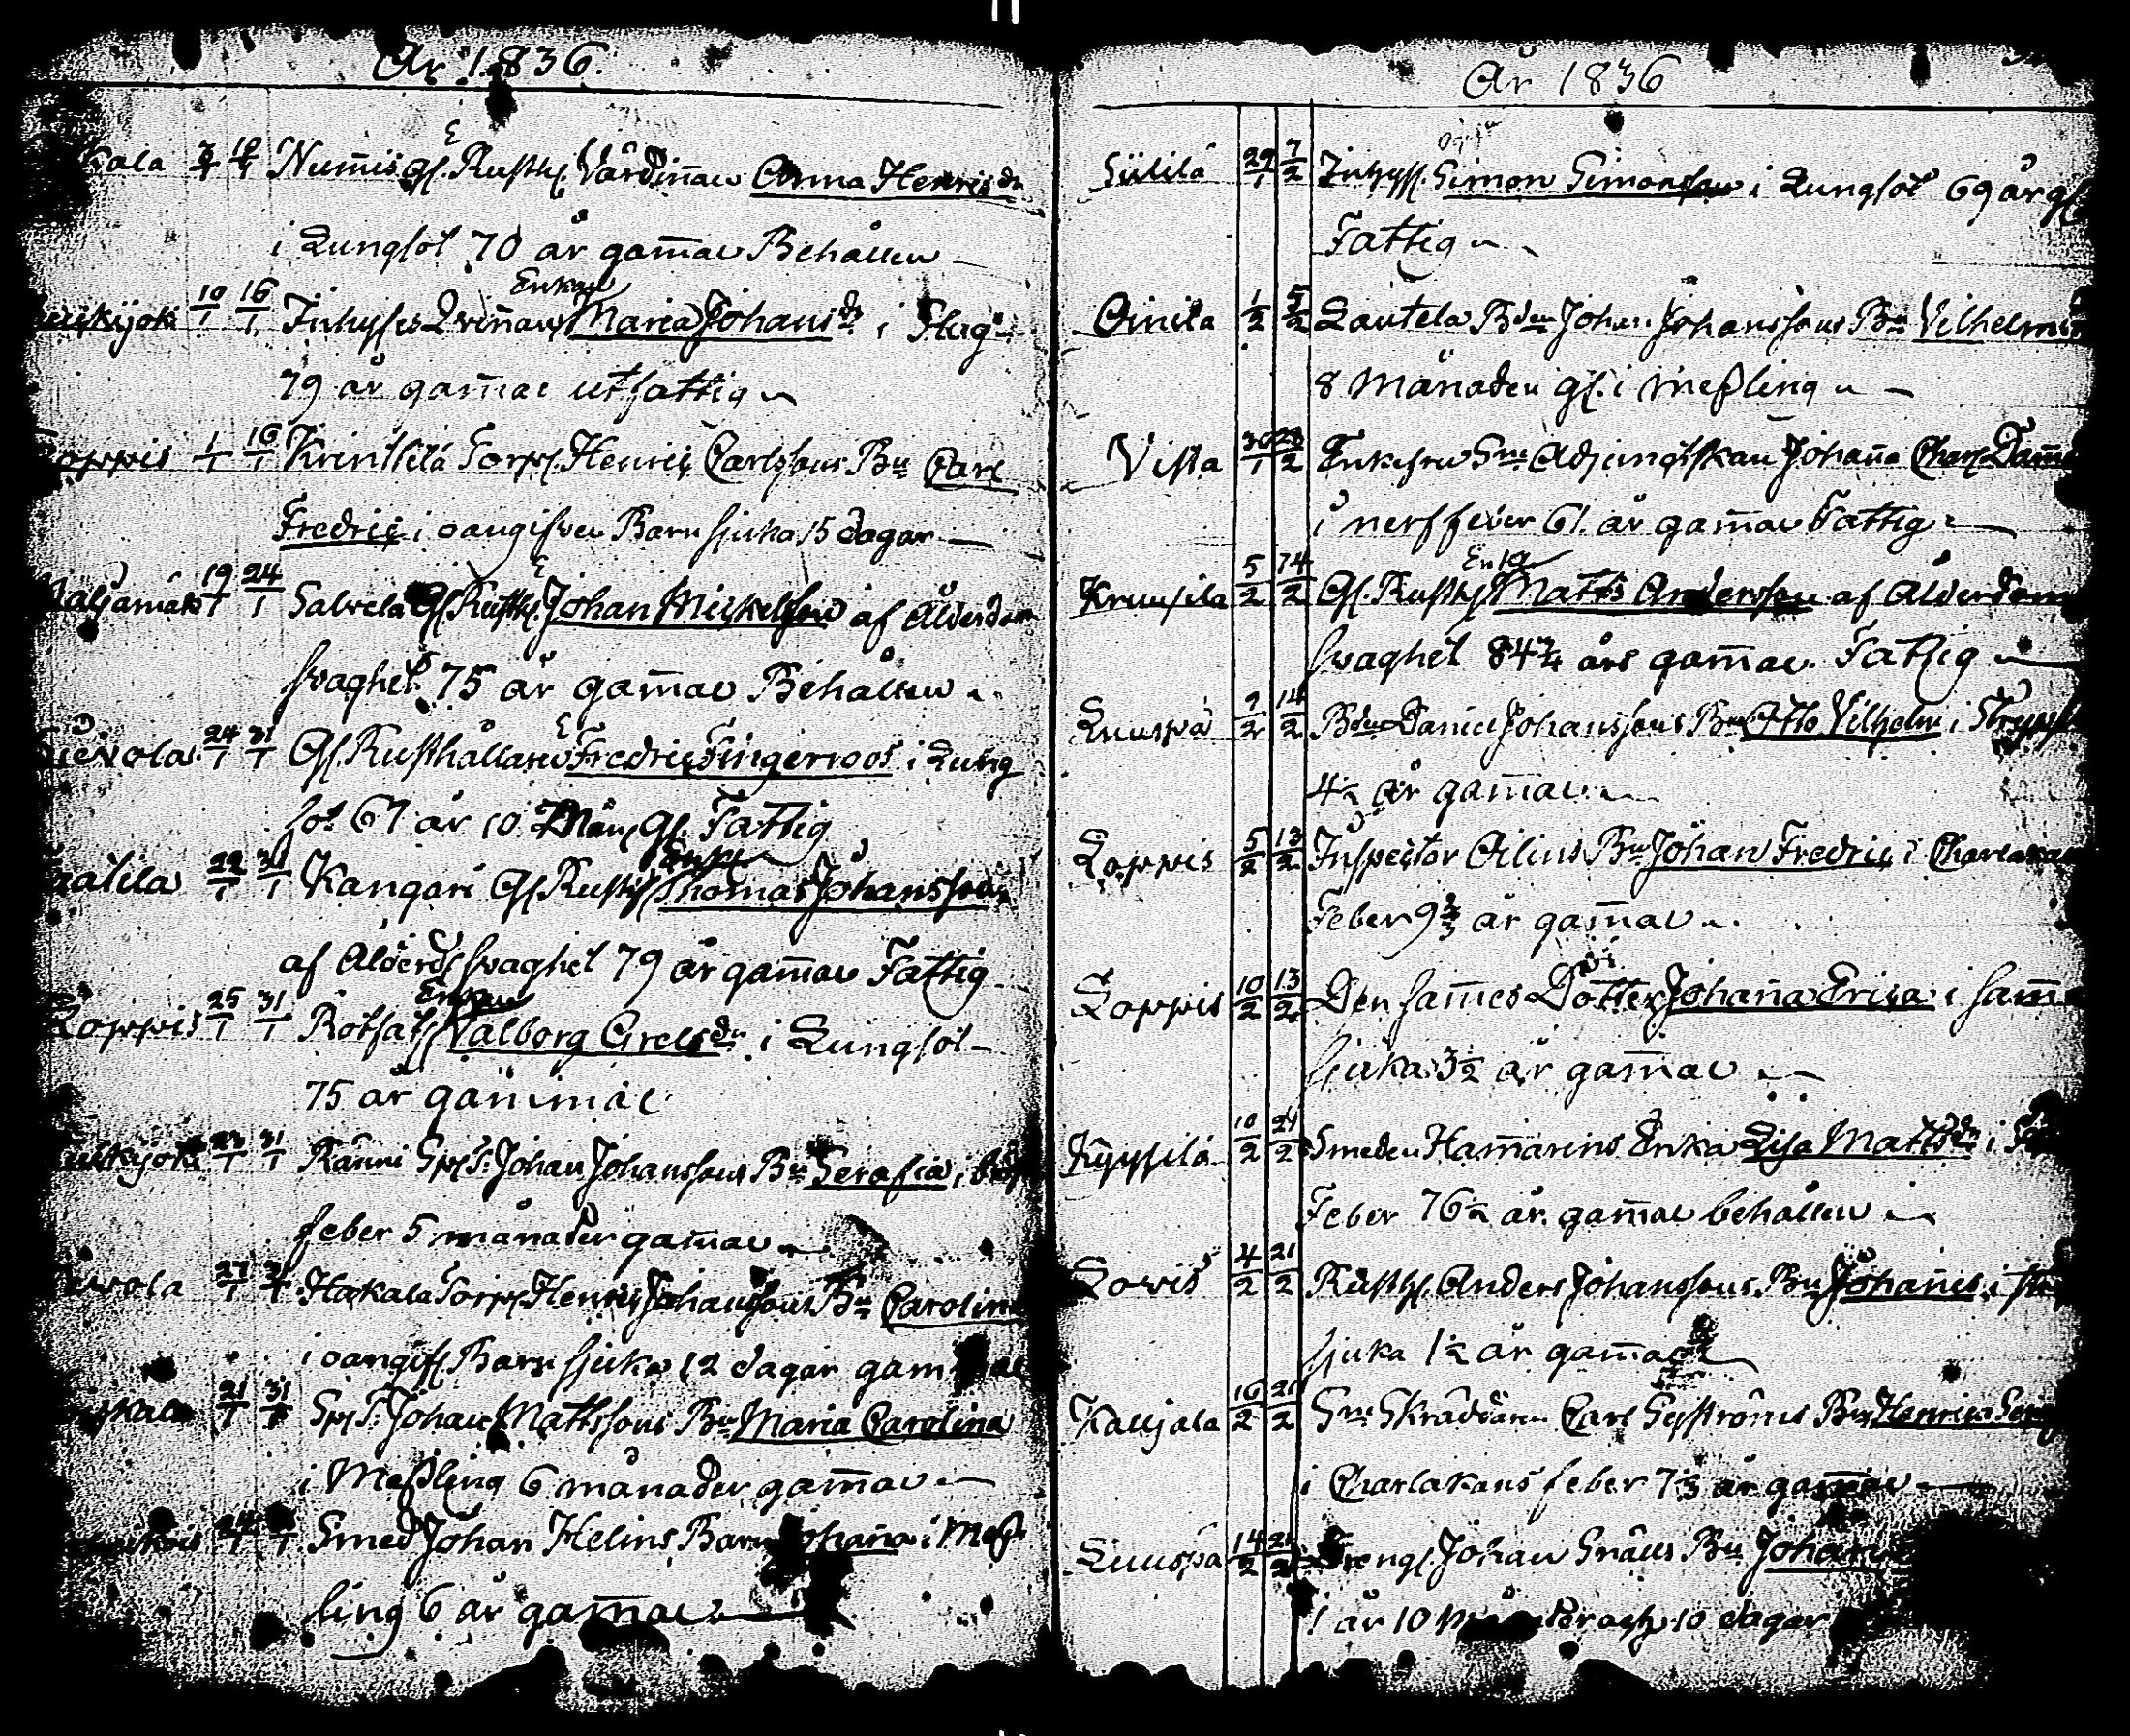 År 1836.
kala 7/1 10/1 Numis Gl. Rusth. Värdinnan Anna Henricsdr
i Lungsot 70 år gam̄al Behållen
Enkan
10/1 16/1 Inhyses Qvinnan Maria Johansdr i Slag
79 år gam̄al utfattig
Loppis 1/1 16/1 Torp. Henric Carlssons Bn Carl
Fredric i oangifven Barnsjuka 15 dagar
19/1 24/1 Salvela Gl. Rusth. Johan Mickelsson af Ålderdom
svaghet 75 år gam̄al Behållen
24/1 31/1 Gl. Rusthållaren Fredric Fingerroos i Lung
sot 67 år 10 Mån. Gl. Fattig
Enkl.
22/1 31/1 Kangari Gl. Rusth. Thomas Johansson
af Ålderd. svaghet 79 år gam̄al Fattig
Enkan
Loppis 25/1 31/1 Rotfat. Valborg Grelsdr i Lungsot
75 år gammal
23/1 31/1 Ränni Sp. T. Johan Johanssons Bn Serafia i
feber 5 månader gam̄al
27/1 Hakala Torp. Henric Johanssons Bn Carolina
i oangif. Barn sjuka 12 dagar gammal
21/1 31/1 Sp. T. Johan Mattssons Bn Maria Carolina
i Messling 6 månader gam̄al
Smed Johan Helins Barn Johan̄a i Mess
ling 6 år gam̄al
År 1836
Ogift
Sülilä 29/1 7/2 Inhys. Simon Simonsson i Lungsot 69 år gl.
Fattig
Oinila 1/2 5/2 Lautela Bden Johan Johanssons Bn Vilhelmi
8 Månader gl. i Messling
Vista 30/1 Enkefru Adjunctskan Johan̄a Charl. Dam̄
i nerffeber 61 år gam̄al Fattig
Enkl.
Kruusila 5/2 14/2 Gl. Rusth. Matts Andersson af Ålderdom
svaghet 84 3/4 års gam̄al. Fattig
Luuspä 9/2 14/2 Bden Daniel Johanssons Bn Otto Vilhelm i Stryps
4 1/2 år gam̄al
Loppis 5/2 13/2 Inspector Oilins Bn Johan Fredric i Charlakans
Feber 9 2/3 år gam̄al
Loppis 10/2 13/2 Den sam̄es Dotter Johan̄a Erica i sam̄a
sjuka 3 1/2 år gam̄al
Kyysilä 10/2 21/2 Smeden Ham̄arins Enka Lisa Mattsdr i
Feber 76 1/2 år gam̄al behållen
Lovis 4/2 21/2 Rusth. Anders Johanssons Bn Johan̄es i
sjuka 1 1/2 år gam̄al
Kaujala 16/2 21/2 Skräddaren Carl Bn Henrica
i Charlakans feber 7 år gam̄al
Luuspä 14/2 21/2 Dreng. Johan Bn Johan
1 år 10 Månader och 10 dagar